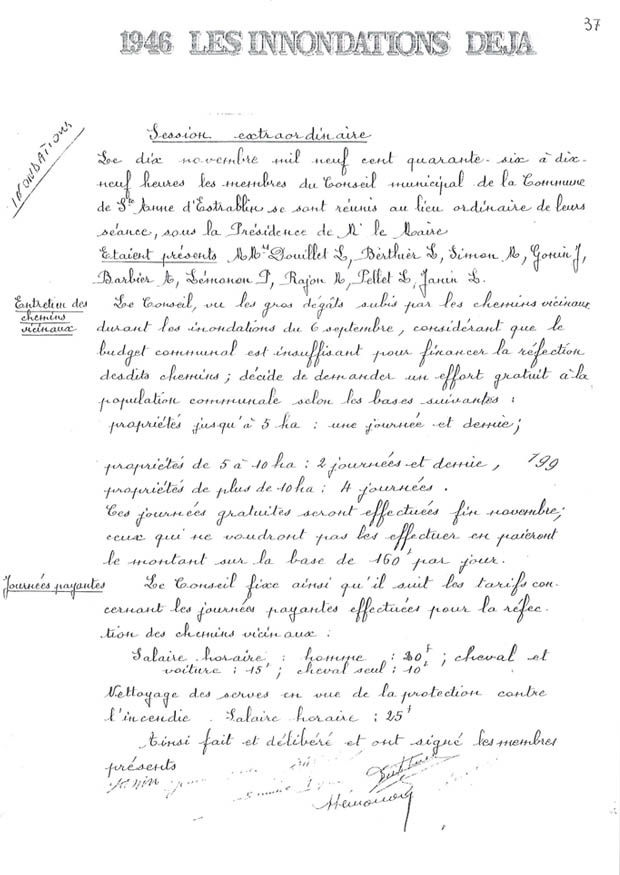 37
1946 LES INNONDATIONS DEJA
INONDATIONS
Session extraordinaire
Le dix novembre mil neuf cent quarante-six à dix-
neuf heures les membres du Conseil municipal de la Commune
de Ste Anne d'Estrablin se sont réunis au lieu ordinaire de leurs
séance, sous la Présidence de Mr le Maire
Etaient présents MMrs Douillet L, Berthier L, Simon M, Gonin J,
Barbier A, Lémonon P, Rajon M, Pellet L, Janin L.
Entretien des
chemins
vicinaux
Le Conseil, vu les gros dégâts subis par les chemins vicinaux
durant les inondations du 6 septembre, considérant que le
budget communal est insuffisant pour financer la réfection
desdits chemins ; décide de demander un effort gratuit à la
population communale selon les bases suivantes :
propriétés jusqu'à 5 ha : une journée et demie ;
propriétés de 5 à 10 ha : 2 journées et demie, 199
propriétés de plus de 10 ha : 4 journées.
Ces journées gratuites seront effectuées fin novembre ;
ceux qui ne voudront pas les effectuer en paieront
le montant sur la base de 160f par jour.
Journées payantes
Le Conseil fixe ainsi qu'il suit les tarifs con-
cernant les journées payantes effectuées pour la réfec-
tion des chemins vicinaux :
Salaire horaire : homme : 20f ; cheval et
voiture : 15f ; cheval seul : 10f
Nettoyage des serves en vue de la protection contre
l'incendie. Salaire horaire : 25f
Ainsi fait et délibéré et ont signé les membres
présents
Janin
Lémonon